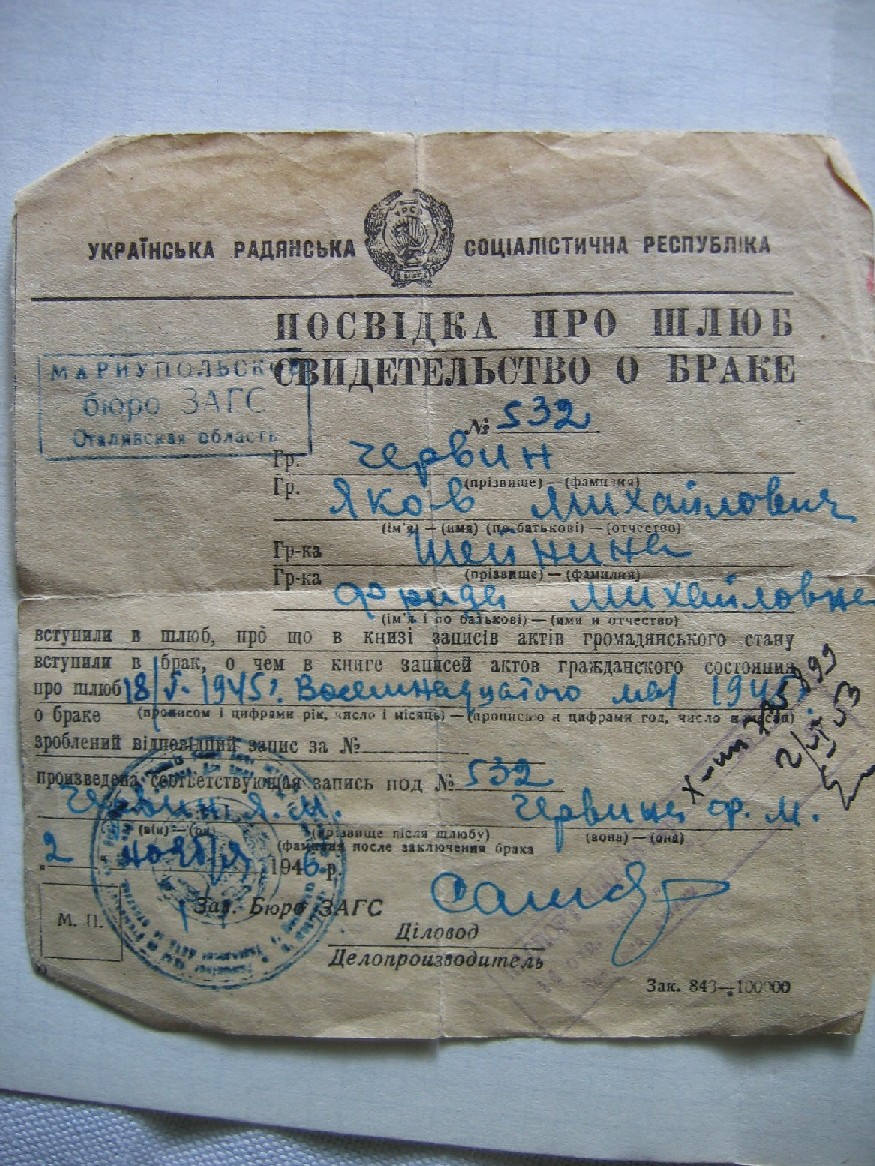 УКРАЇНСЬКА РАДЯНСЬКА СОЦІАЛІСТИЧНА РЕСПУБЛІКА
ПОСВІДКА ПРО ШЛЮБ
СВИДЕТЕЛЬСТВО О БРАКЕ
МАРИУПОЛЬСКОЕ
бюро ЗАГС
Сталинская область
№ 532
Гр. Червин
(прізвище) — (фамилия)
Гр. Яков Михайлович
(ім'я) — (имя) (по батькові) — (отчество)
Гр-ка Шейнина
(прізвище) — (фамилия)
Гр-ка Фрида Михайловна
(ім'я і по батькові) — (имя и отчество)
вступили в шлюб, про що в книзі записів актів громадянського стану
вступили в брак, о чем в книге записей актов гражданского состояния
про шлюб 18/V - 1945г. Восемнадцатого мая 1945г.
о браке (прописом і цифрами рік, число і місяць) — (прописью и цифрами год, число и месяц)
зроблений відповідний запис за №
произведена соответствующая запись под № 532
Червин Я. М. Червина Ф. М.
(він) — (он) (прізвище після шлюбу) (вона) — (она)
(фамилия после заключения брака
2 ноября 1946 р.
М. П.
Зав. Бюро ЗАГС
Діловод
Делопроизводитель
Зак. 843—100000